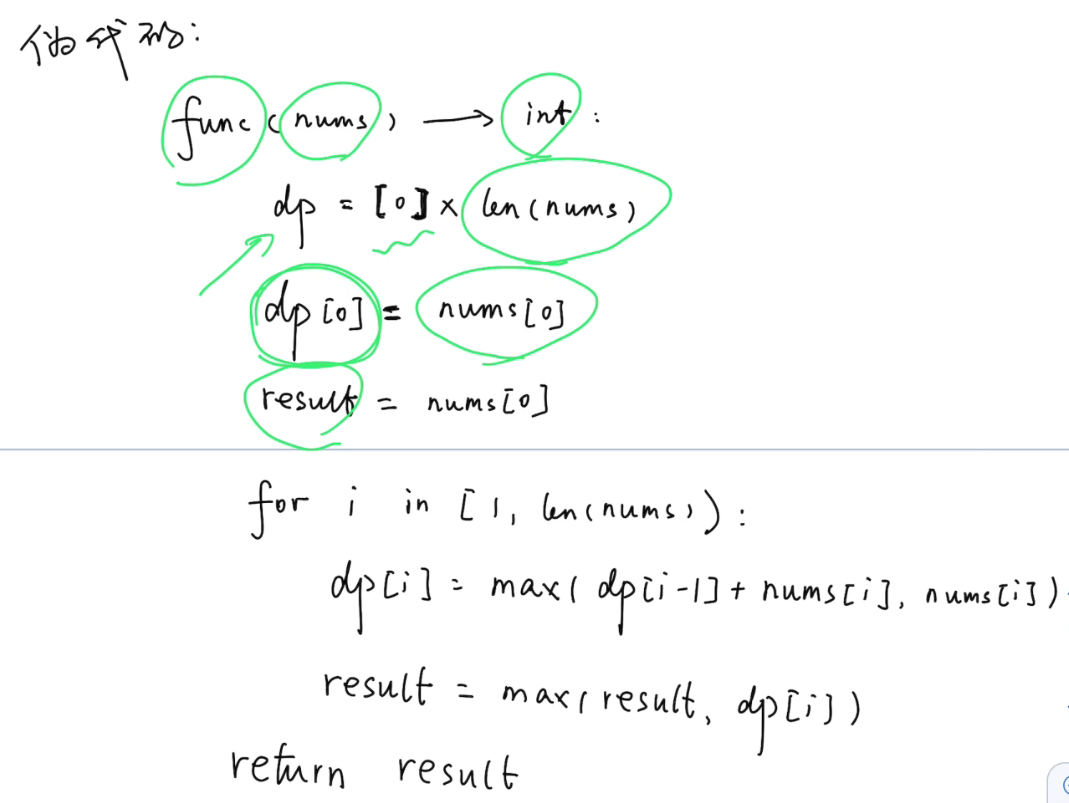 伪代码:
func(nums) → int:
dp = [0] × len(nums)
dp[0] = nums[0]
result = nums[0]
for i in [1, len(nums)):
dp[i] = max(dp[i-1] + nums[i], nums[i])
result = max(result, dp[i])
return result